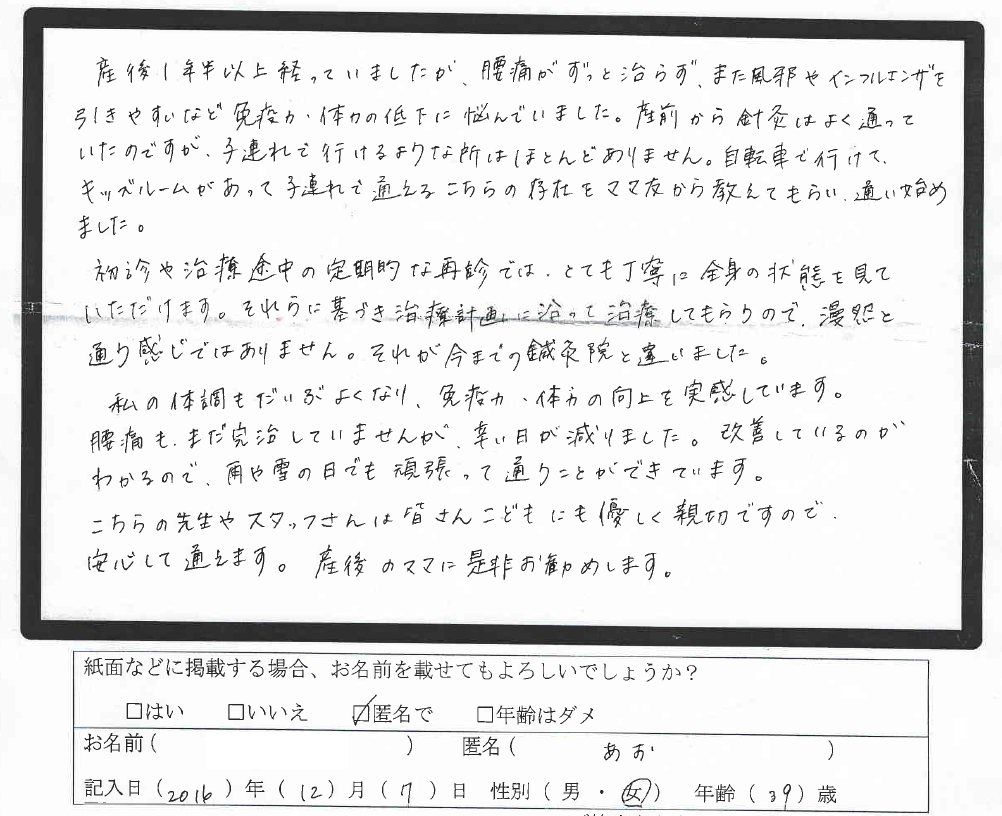 産後1年半以上経っていましたが、腰痛がずっと治らず、また風邪やインフルエンザを
引きやすいなど免疫力・体力の低下に悩んでいました。産前から針灸はよく通って
いたのですが、子連れで行けるような所はほとんどありません。自転車で行けて、
キッズルームがあって子連れで通えるこちらの存在をママ友から教えてもらい、通い始め
ました。
初診や治療途中の定期的な再診では、とても丁寧に全身の状態を見て
いただけます。それらに基づき治療計画に沿って治療してもらうので、漫然と
通う感じではありません。それが今までの鍼灸院と違いました。
私の体調もだいぶよくなり、免疫力・体力の向上を実感しています。
腰痛も、まだ完治していませんが、辛い日が減りました。改善しているのが
わかるので、雨や雪の日でも頑張って通うことができています。
こちらの先生やスタッフさんは皆さんこどもにも優しく親切ですので、
安心して通えます。産後のママに是非お勧めします。
紙面などに掲載する場合、お名前を載せてもよろしいでしょうか？
□はい □いいえ ☑匿名で □年齢はダメ
お名前（ ） 匿名（ あお ）
記入日（2016）年（12）月（7）日 性別（男・女） 年齢（39）歳